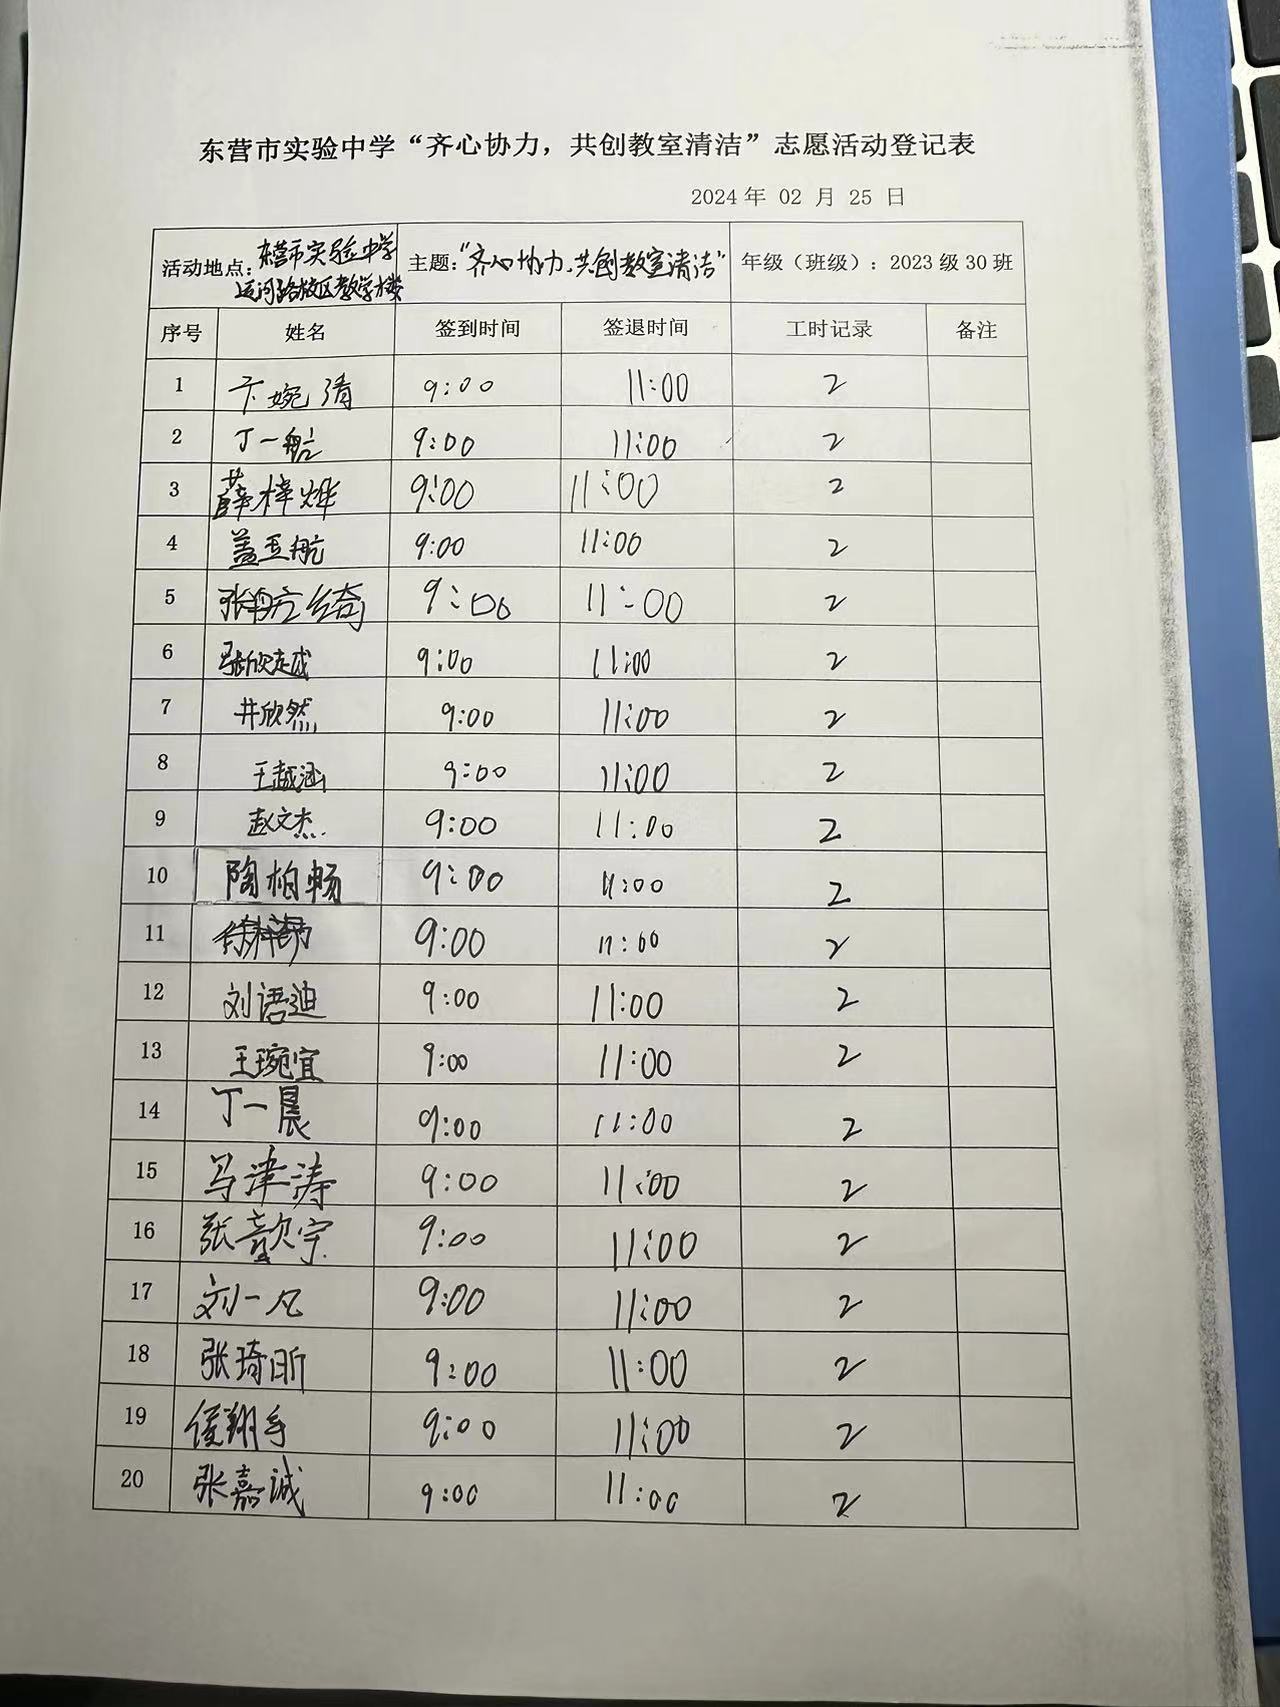 东营市实验中学“齐心协力，共创教室清洁”志愿活动登记表
2024年 02 月 25 日
活动地点：东营市实验中学运河路校区教学楼 主题：“齐心协力，共创教室清洁” 年级（班级）：2023级30班
序号 姓名 签到时间 签退时间 工时记录 备注
1 卞婉清 9:00 11:00 2
2 丁一航 9:00 11:00 2
3 薛梓烨 9:00 11:00 2
4 盖亚航 9:00 11:00 2
5 张 9:00 11:00 2
6 张欣越 9:00 11:00 2
7 井欣然 9:00 11:00 2
8 王越涵 9:00 11:00 2
9 赵文杰 9:00 11:00 2
10 陶柏畅 9:00 11:00 2
11 9:00 11:00 2
12 刘语迪 9:00 11:00 2
13 王琬宜 9:00 11:00 2
14 丁一晨 9:00 11:00 2
15 马津涛 9:00 11:00 2
16 张歆宇 9:00 11:00 2
17 刘一凡 9:00 11:00 2
18 张琦昕 9:00 11:00 2
19 侯翔 9:00 11:00 2
20 张嘉诚 9:00 11:00 2